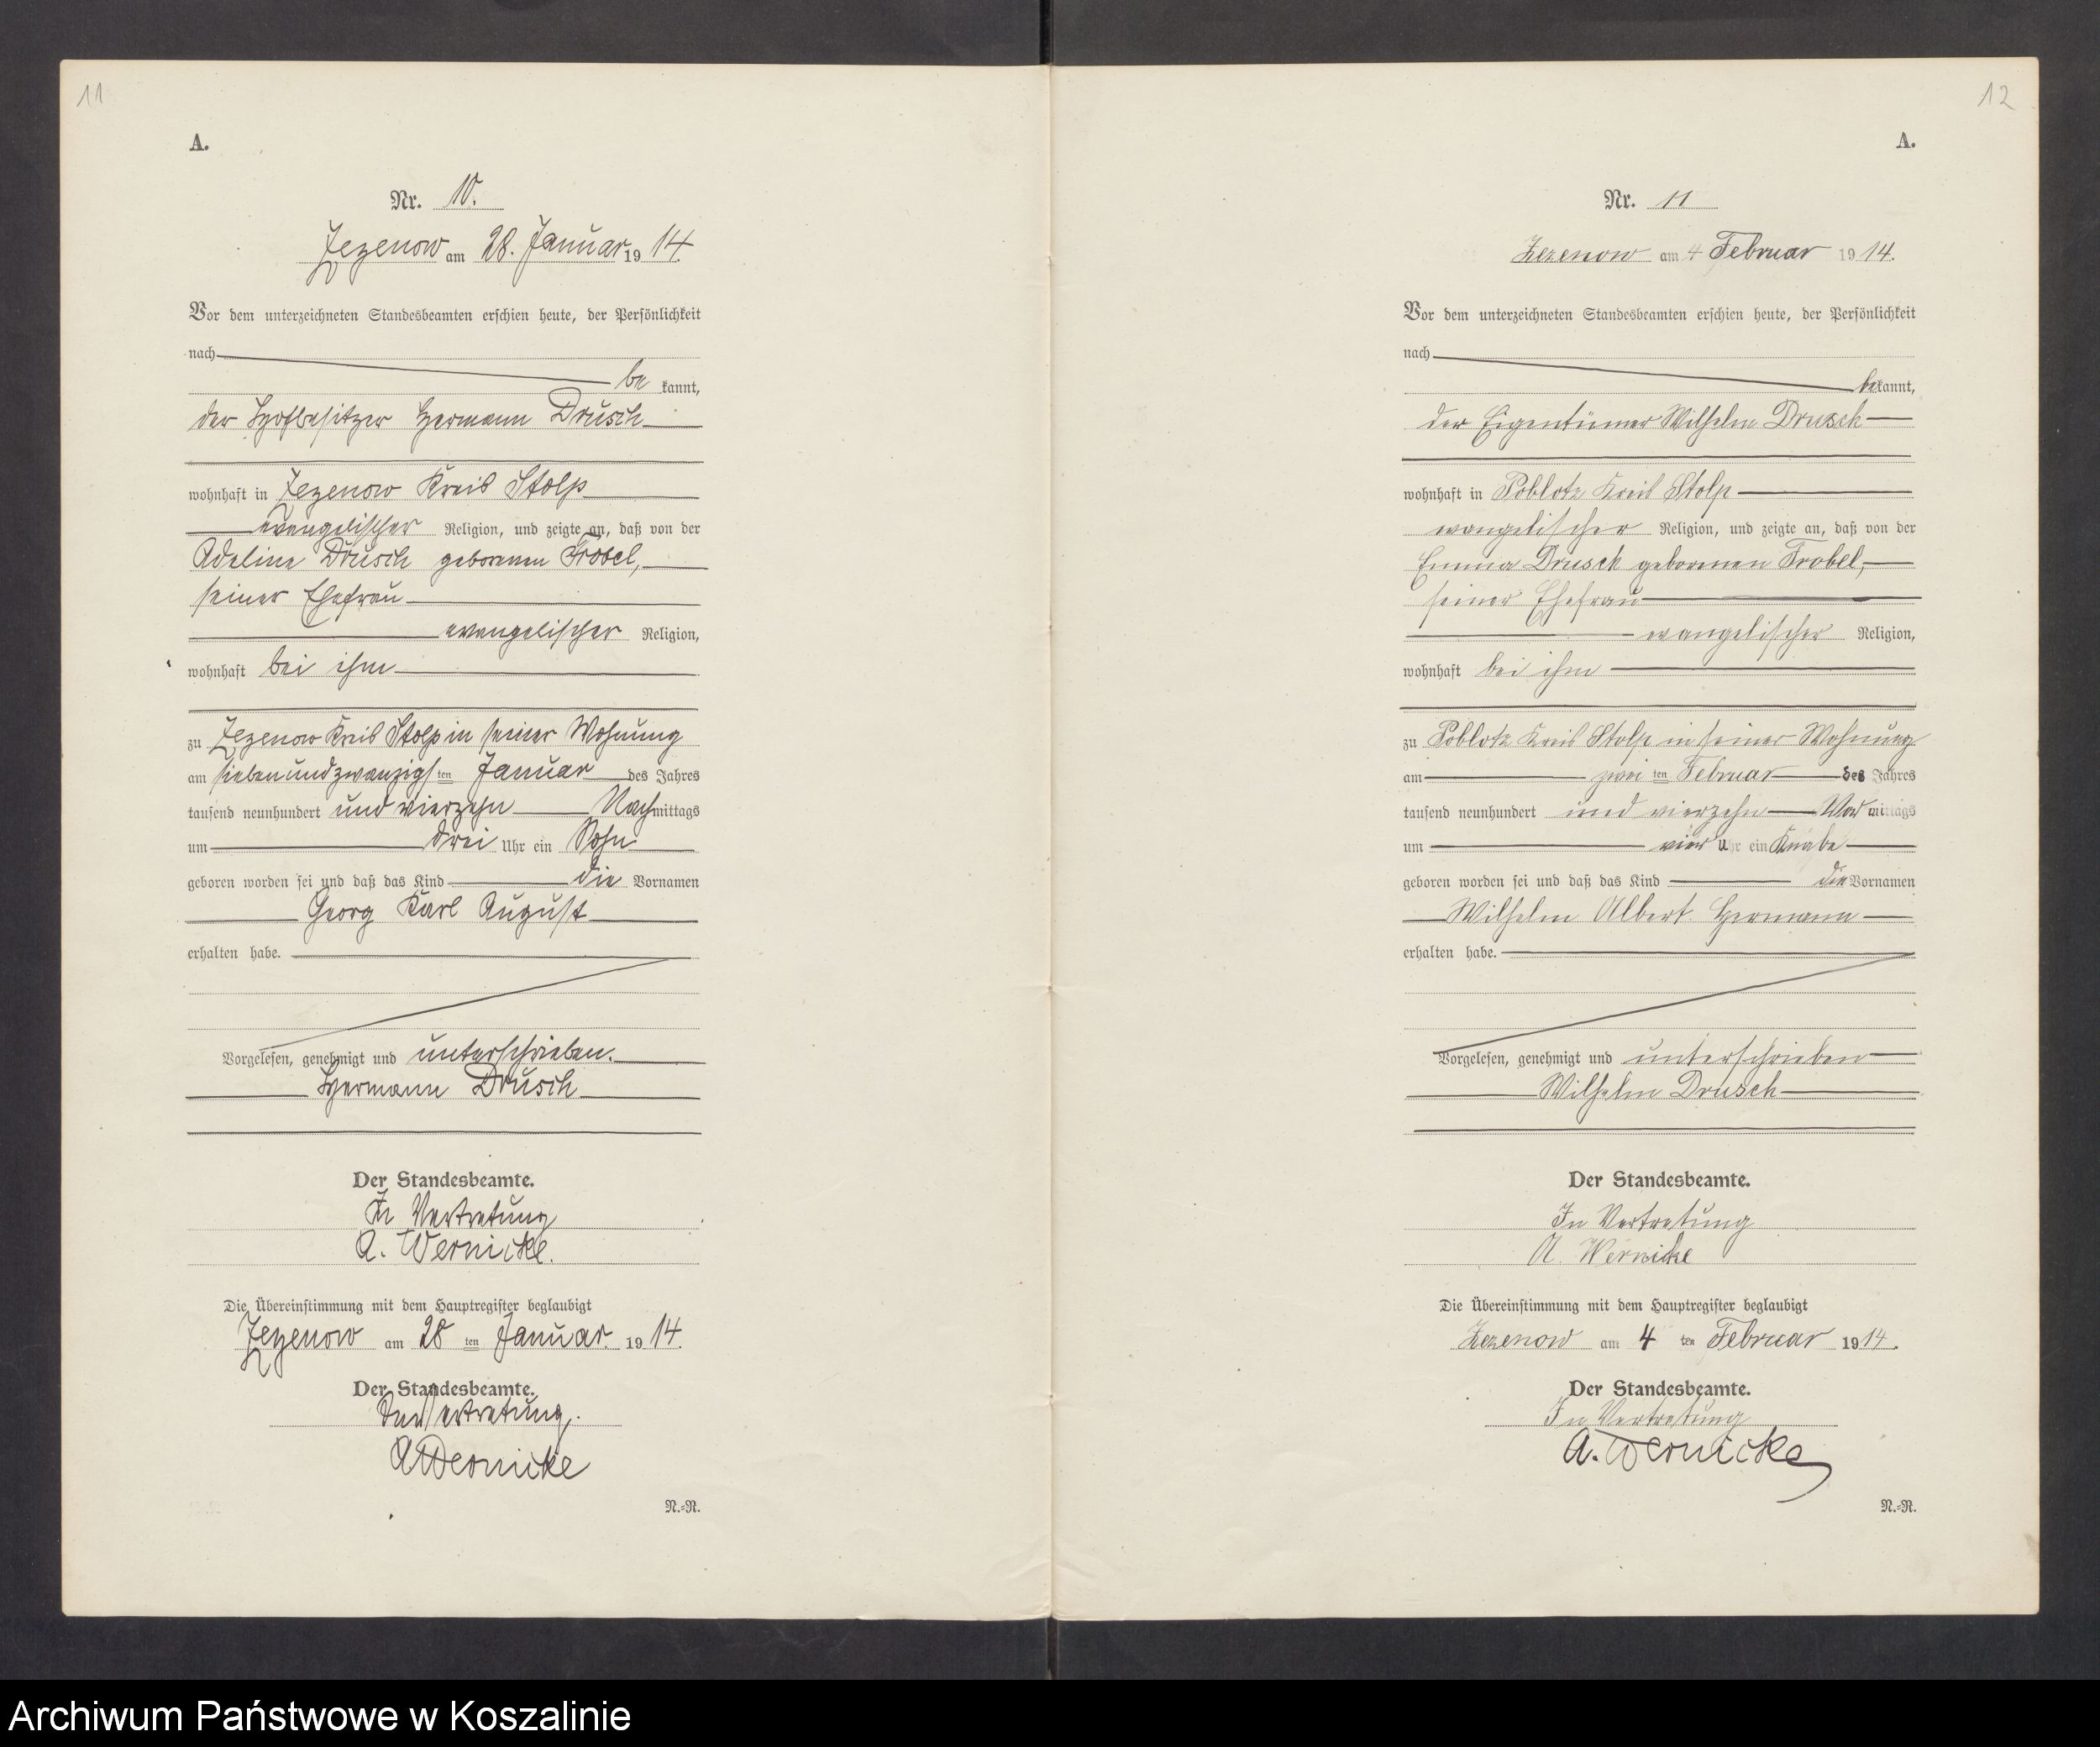 11
A.
Nr. 10.
Zezenow am 28. Januar 1914.
Vor dem unterzeichneten Standesbeamten erschien heute, der Persönlichkeit
nach
be kannt,
der Hofbesitzer Hermann Drusch
wohnhaft in Zezenow Kreis Stolp
evangelischer Religion, und zeigte an, daß von der
Adeline Drusch geborenen Frobel,
seiner Ehefrau
evangelischer Religion,
wohnhaft bei ihm
zu Zezenow Kreis Stolp in seiner Wohnung
am siebenundzwanzigsten Januar des Jahres
tausend neunhundert und vierzehn Nachmittags
um drei Uhr ein Sohn
geboren worden sei und daß das Kind die Vornamen
Georg Karl August
erhalten habe.
Vorgelesen, genehmigt und unterschrieben.
Hermann Drusch
Der Standesbeamte.
In Vertretung
A. Wernicke.
Die Übereinstimmung mit dem Hauptregister beglaubigt
Zezenow am 28 ten Januar 1914.
Der Standesbeamte.
In Vertretung.
A Wernicke
N.=R.
12
A.
Nr. 11
Zezenow am 4 Februar 1914.
Vor dem unterzeichneten Standesbeamten erschien heute, der Persönlichkeit
nach
bekannt,
der Eigentümer Wilhelm Drusch
wohnhaft in Poblotz Kreis Stolp
evangelischer Religion, und zeigte an, daß von der
Emma Drusch geborenen Frobel,
seiner Ehefrau
evangelischer Religion,
wohnhaft bei ihm
zu Poblotz Kreis Stolp in seiner Wohnung
am zwei ten Februar des Jahres
tausend neunhundert und vierzehn Vor mittags
um vier Uhr ein Knabe
geboren worden sei und daß das Kind die Vornamen
Wilhelm Albert Hermann
erhalten habe.
Vorgelesen, genehmigt und unterschrieben
Wilhelm Drusch
Der Standesbeamte.
In Vertretung
A. Wernicke
Die Übereinstimmung mit dem Hauptregister beglaubigt
Zezenow am 4 ten Februar 1914.
Der Standesbeamte.
In Vertretung
A. Wernicke
N.=R.
Archiwum Państwowe w Koszalinie